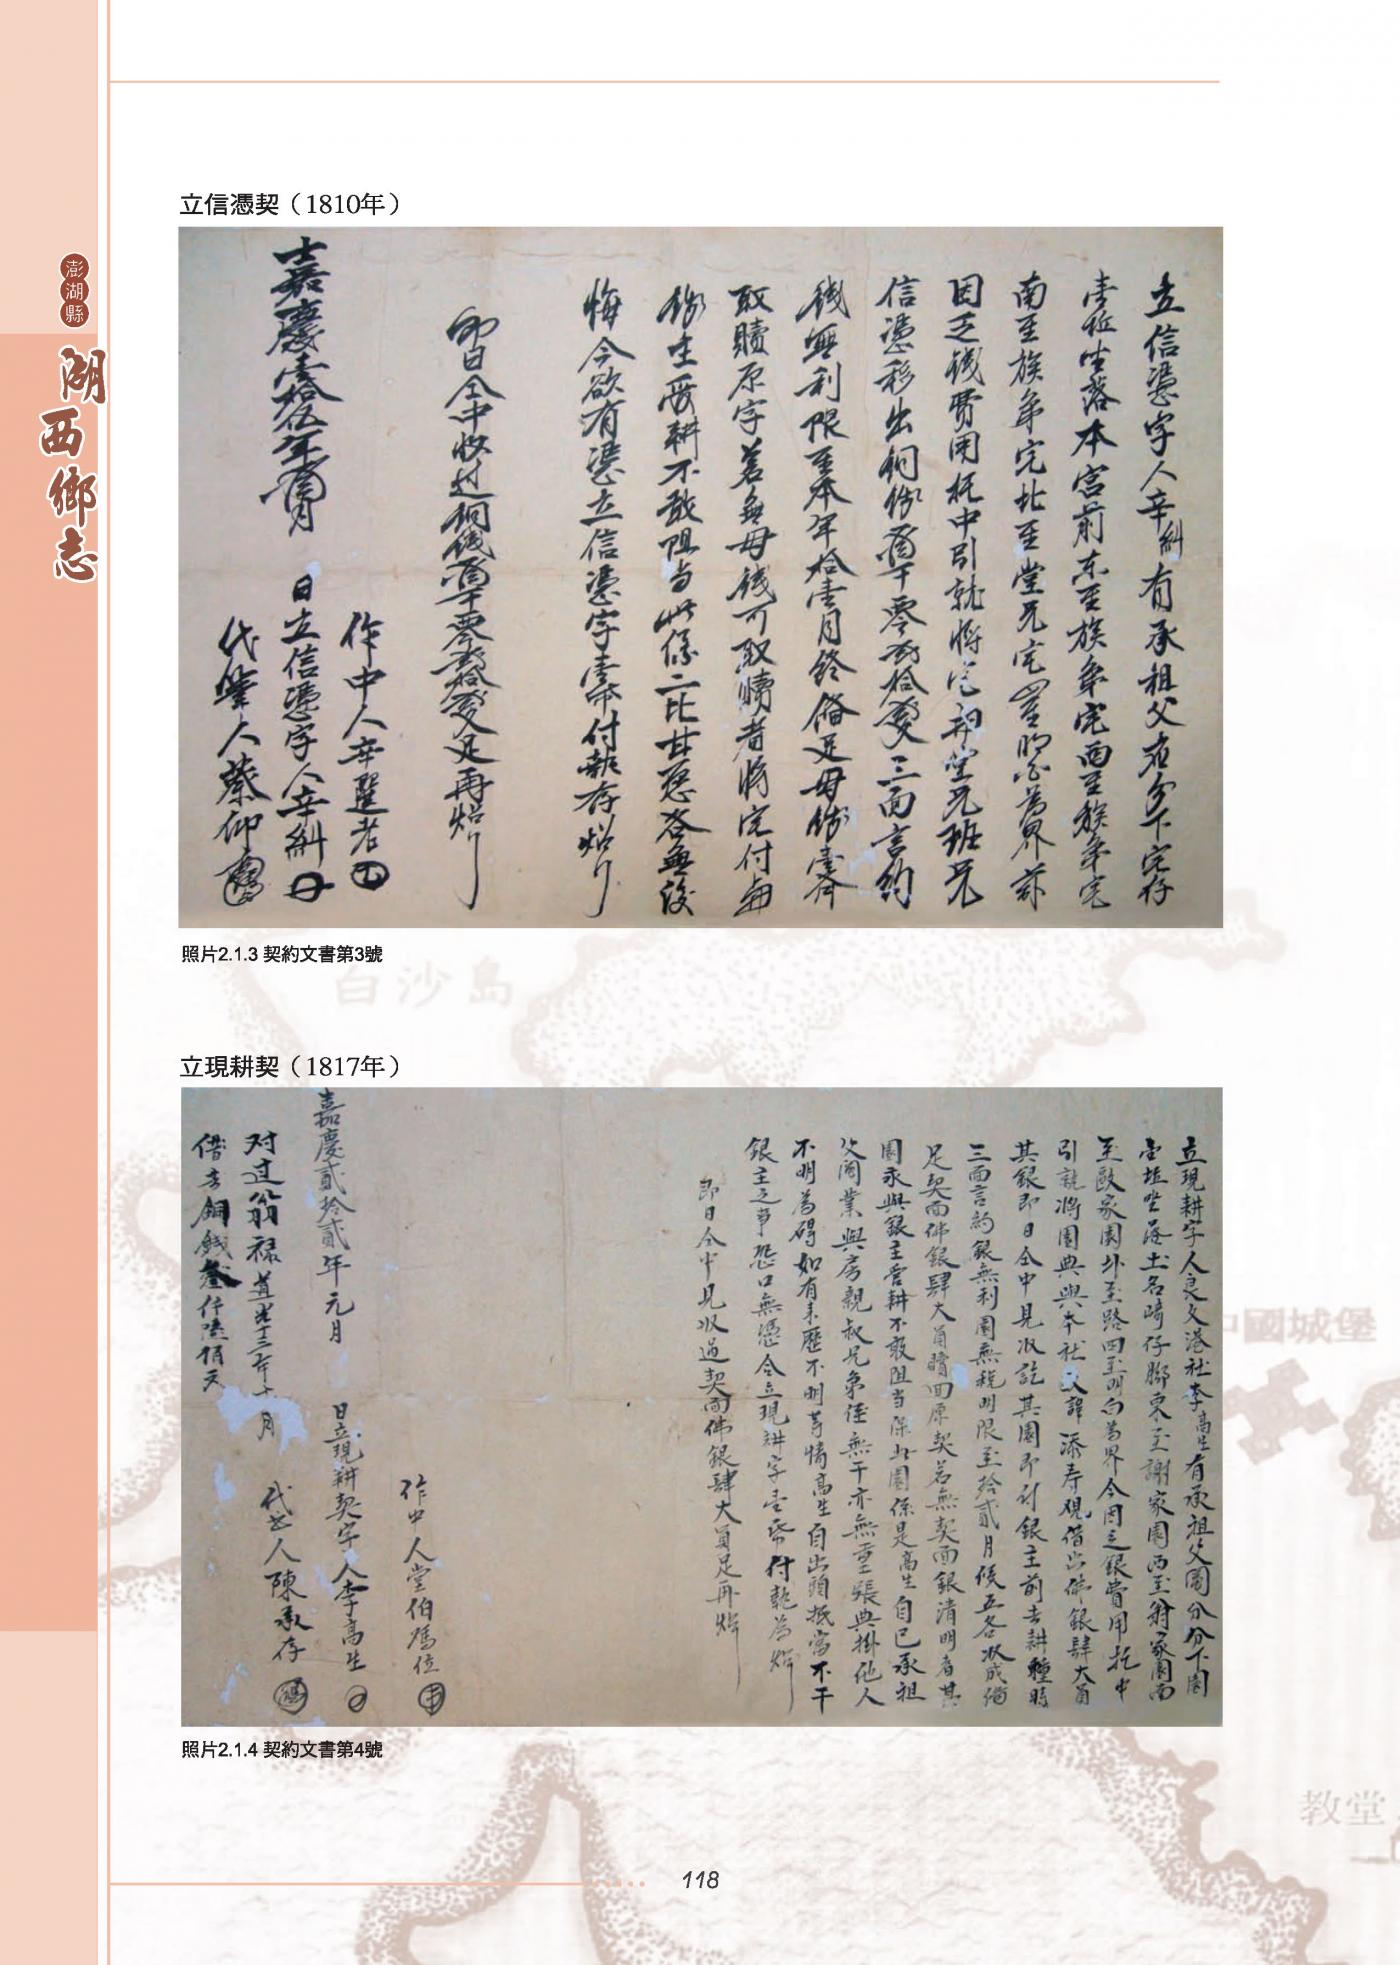 澎湖縣
湖西鄉志
立信憑契（1810年）
立信憑字人辛糾有承祖父在分下宅仔
壹坵坐落本宮前東至族弟宅西至族弟宅
南至族弟宅北至堂兄宅四至明白為界茲
因乏錢費用托中引就將宅
信憑移出銅錢
錢無利限至本年拾壹月終備足母錢壹齊
取贖原字若無母錢可取贖者將宅付與
錢主掌耕不敢阻当此係二比甘愿各無後
悔今欲有憑立信憑字壹帋付執存炤
即日仝中收过銅錢
嘉慶壹拾伍年
日立信憑字人辛糾
作中人辛選老
代筆人蔡仰
照片2.1.3 契約文書第3號
立現耕契（1817年）
立現耕字人良文港社李高生有承祖父園分分下園
壹坵坐落土名崎仔脚東至謝家園西至翁家園南
至歐家園北至路四至明白為界今因乏銀費用托中
引就將園典與本社
其銀即日仝中見收訖其園即付銀主前去耕種時
三面言約銀無利園無稅明限至拾貳月後五谷收成備
足契面佛銀肆大員贖回原契若無契面銀清明者其
園永與銀主管耕不敢阻当保此園係是高生自己承祖
父鬮業與房親叔兄弟侄無干亦無重張典掛他人
不明為碍如有來歷不明等情高生自出頭抵當不干
銀主之事恐口無憑今立現耕字壹帋付執為炤
即日仝中見收過契面佛銀肆大員足再炤
作中人堂伯馮位
嘉慶貳拾貳年元月
日立現耕契字人李高生
代書人陳承存
对过翁祿道光十三年十月
借去銅錢叁仟陸佰文
照片2.1.4 契約文書第4號
白沙島
中國城堡
教堂
118